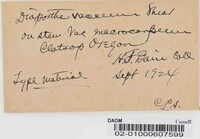 Diaporthe vaccinii Shear
on stem Vac. macrocarpon
Clatsop Oregon
H.F. Bain Coll
Sept 1924
Type material
C.L.S.
DAOM
Canada
02-01000007599